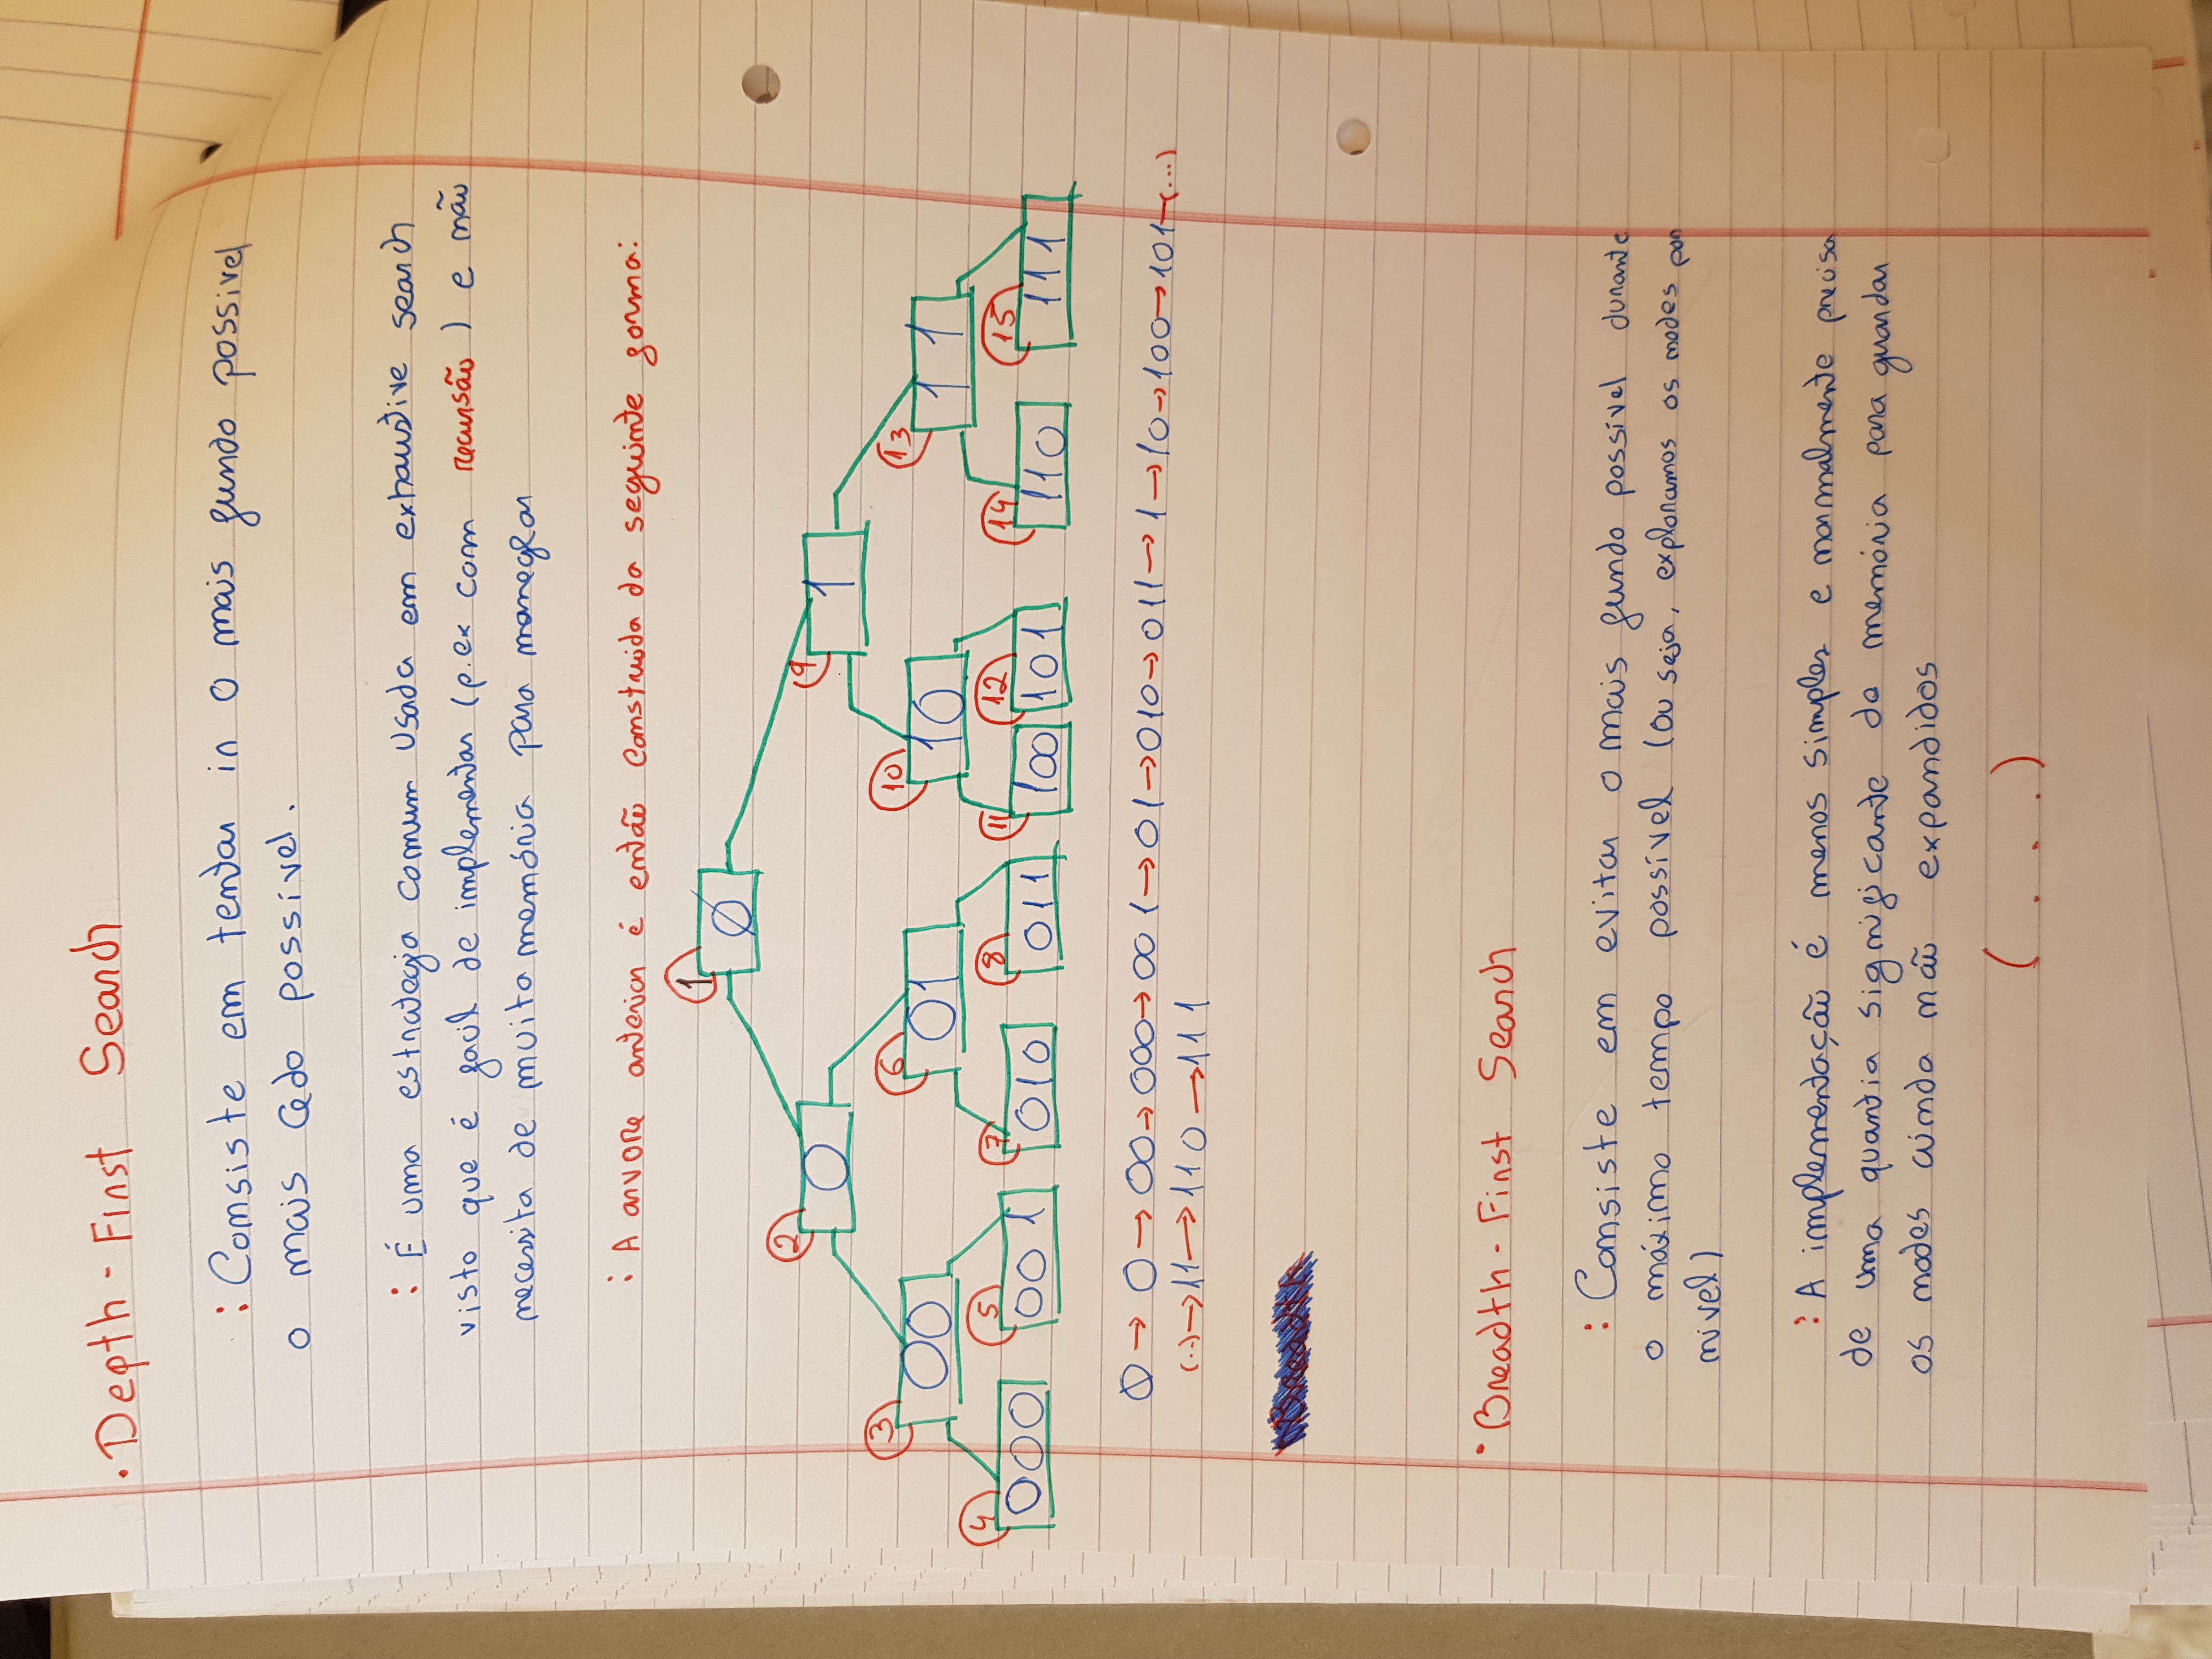 • Depth - First Search
: Consiste em tentar ir o mais fundo possivel
o mais cedo possível.
: É uma estrategia comum usada em exhaustive search
visto que é facil de implementar (p.ex com recursão) e não
necessita de muita memória para
: A arvore anterior é então construida da seguinte forma:
1 Ø
2 0 9 1
3 00 6 01 10 10 13 11
4 000 5 001 7 010 8 011 11 100 12 101 14 110 15 111
Ø → 0 → 00 → 000 → 001 → 01 → 010 → 011 → 1 → 10 → 100 → 101 → (...)
(..) → 11 → 110 → 111
• Breadth - First Search
: Consiste em evitar o mais fundo possível durante
o máximo tempo possível (ou seja, exploramos os nodes por
nivel)
: A implementação é menos simples e normalmente precisa
de uma quantia significante de memória para guardar
os nodes ainda não expandidos
(...)